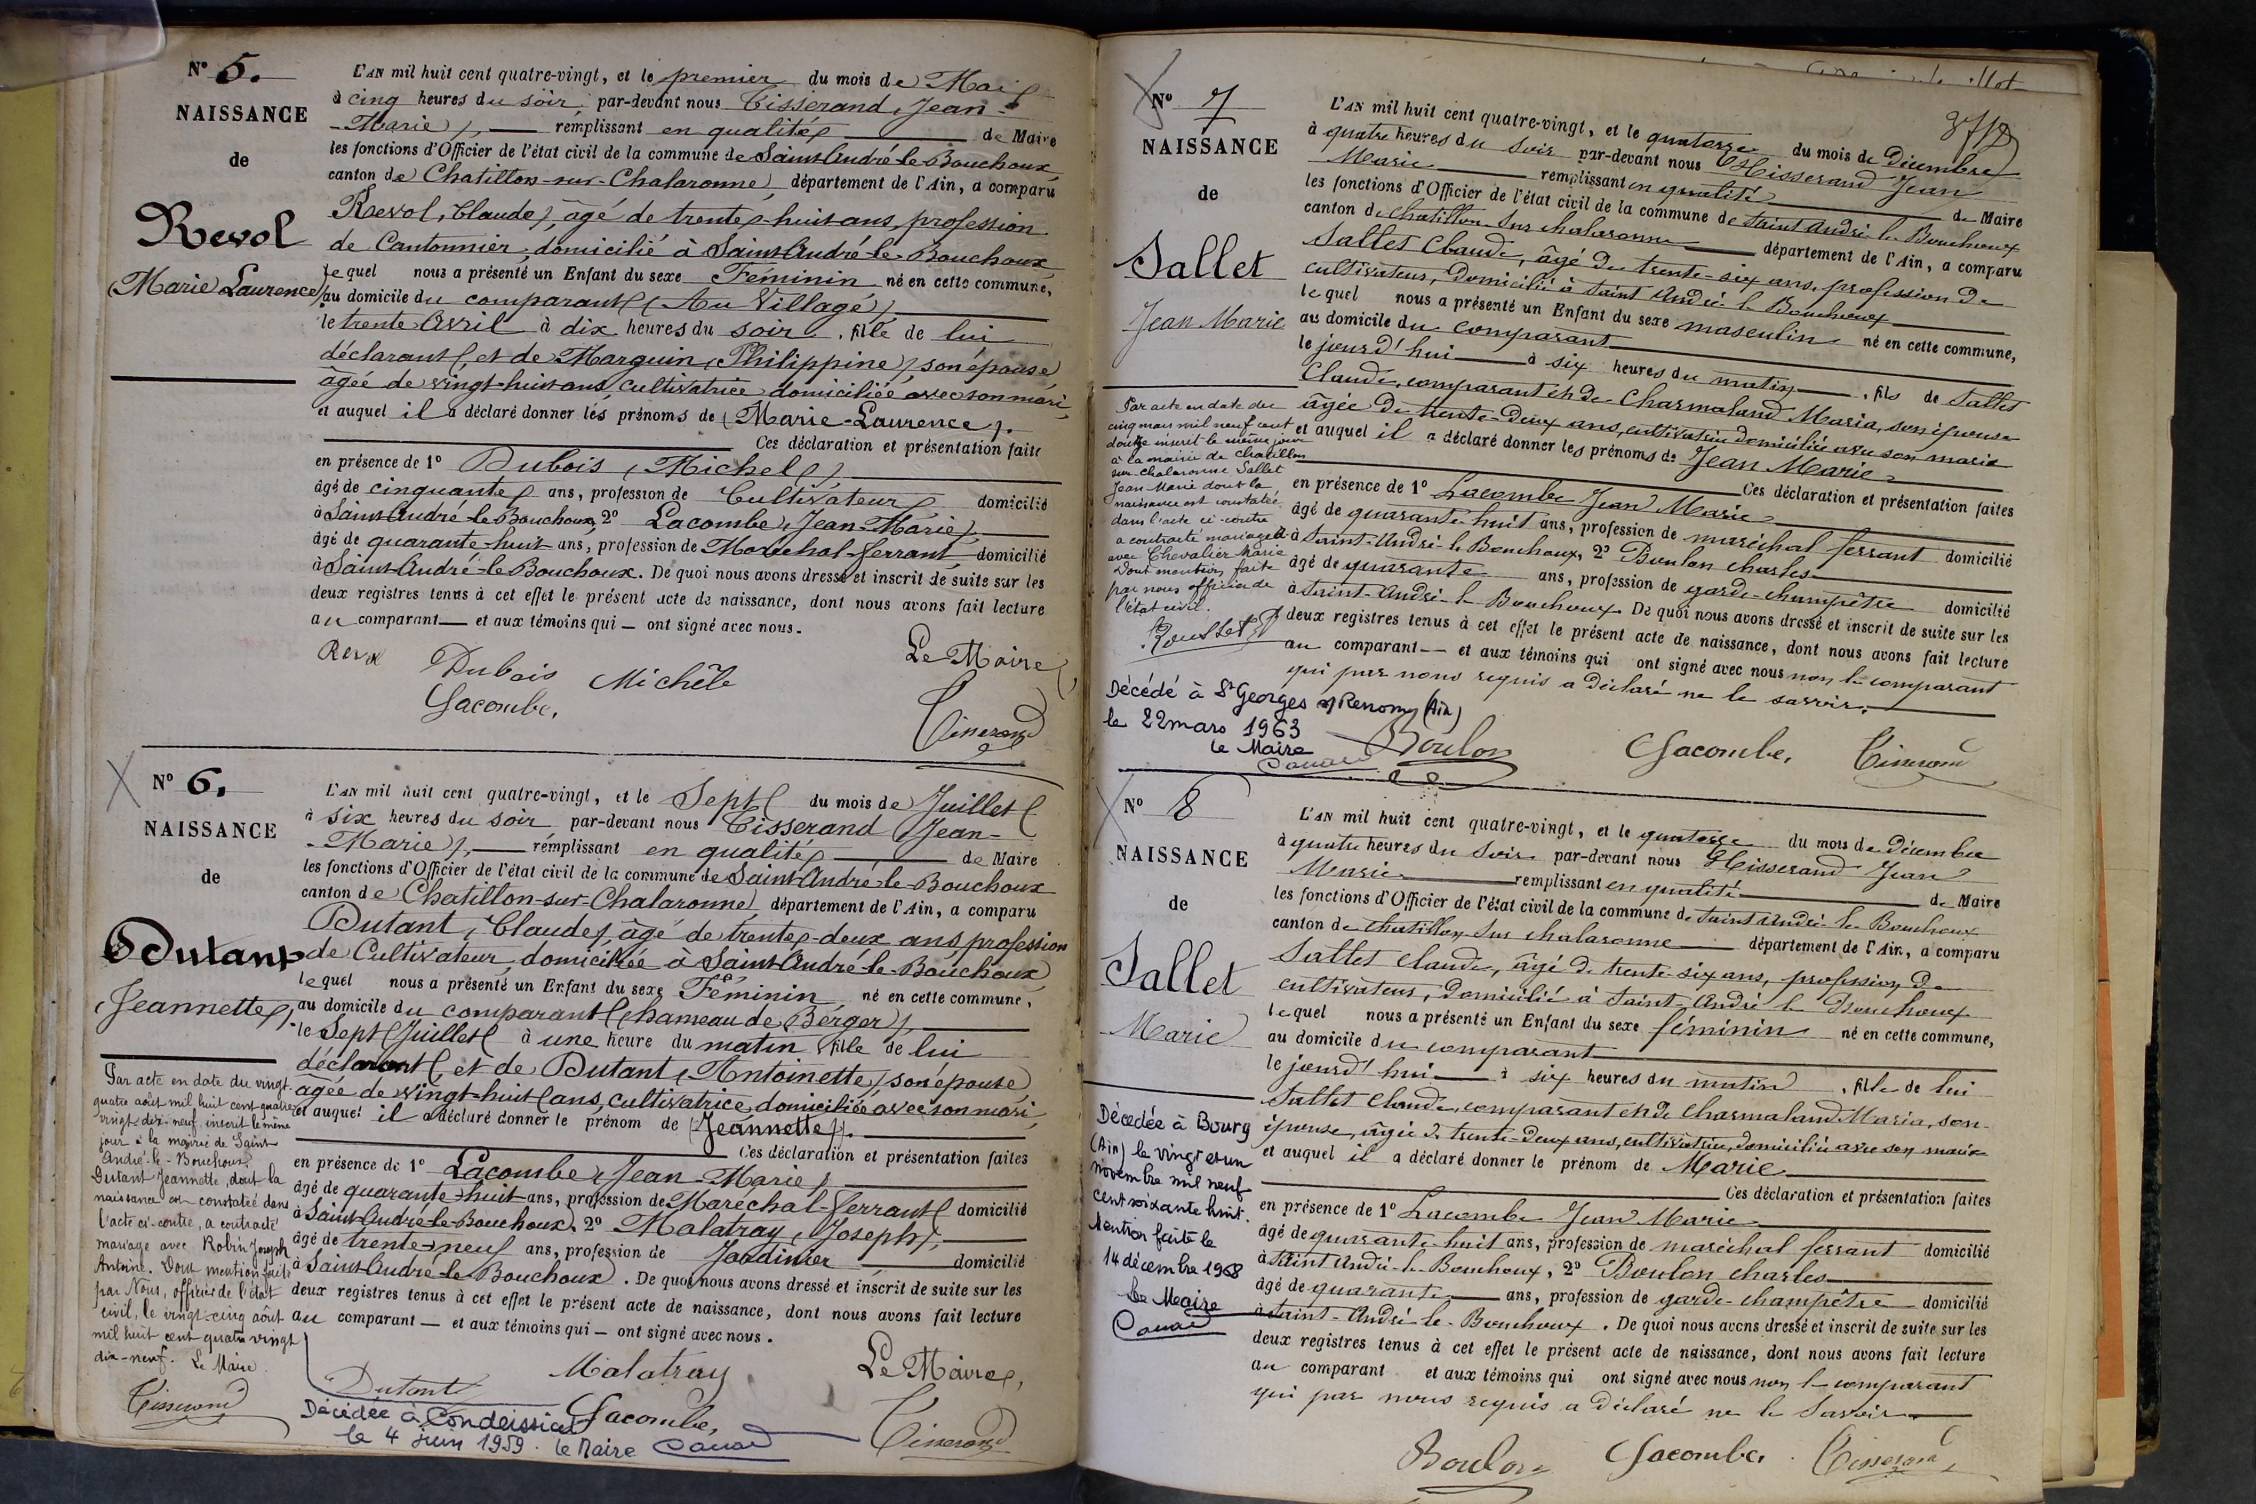 N° 5.
NAISSANCE
de
Revol
(Marie Laurence)
L'AN mil huit cent quatre-vingt, et le premier du mois de Mai
à cinq heures du soir par-devant nous Tisserand, Jean-
-Marie), remplissant en qualité de Maire
les fonctions d'Officier de l'état civil de la commune de Saint-André-le-Bouchoux,
canton de Chatillon-sur-Chalaronne, département de l'Ain, a comparu
Revol, Claude), âgé de trente-huit ans, profession
de Cantonnier, domicilié à Saint-André-le-Bouchoux,
lequel nous a présenté un Enfant du sexe Féminin né en cette commune,
au domicile du comparant (Au Village)
le trente Avril à dix heures du soir, fille de lui
déclarant, et de Marguin (Philippine), son épouse
âgée de vingt-huit ans, cultivatrice domiciliée avec son mari,
et auquel il a déclaré donner les prénoms de (Marie-Laurence).
Ces déclaration et présentation faite
en présence de 1° Dubois (Michel)
âgé de cinquante ans, profession de Cultivateur domicilié
à Saint-André-le-Bouchoux, 2° Lacombe, Jean-Marie),
âgé de quarante-huit ans, profession de Maréchal-ferrant, domicilié
à Saint-André-le-Bouchoux. De quoi nous avons dressé et inscrit de suite sur les
deux registres tenus à cet effet le présent acte de naissance, dont nous avons fait lecture
au comparant et aux témoins qui ont signé avec nous.
Revol Dubois Michel Le Maire
Lacombe. Tisserand
N° 6.
NAISSANCE
de
Dutant
(Jeannette),
L'AN mil huit cent quatre-vingt, et le Sept du mois de Juillet
à six heures du soir par-devant nous Tisserand (Jean-
-Marie), remplissant en qualité de Maire
les fonctions d'Officier de l'état civil de la commune de Saint-André-le-Bouchoux
canton de Chatillon-sur-Chalaronne, département de l'Ain, a comparu
Dutant, Claude, âgé de trente-deux ans profession
de Cultivateur, domiciliée à Saint-André-le-Bouchoux
lequel nous a présenté un Enfant du sexe Féminin, né en cette commune,
au domicile du comparant (hameau de Berger),
le Sept Juillet à une heure du matin, fille de lui
déclarant, et de Dutant (Antoinette), son épouse
âgée de vingt-huit ans, cultivatrice domiciliée avec son mari,
et auquel il a déclaré donner le prénom de (Jeannette).
Ces déclaration et présentation faites
en présence de 1° Lacombe, Jean-Marie),
âgé de quarante-huit ans, profession de Maréchal-ferrant domicilié
à Saint-André-le-Bouchoux, 2° Malatray, (Joseph),
âgé de trente-neuf ans, profession de Jardinier domicilié
à Saint-André-le-Bouchoux. De quoi nous avons dressé et inscrit de suite sur les
deux registres tenus à cet effet le présent acte de naissance, dont nous avons fait lecture
au comparant et aux témoins qui ont signé avec nous.
Malatray Le Maire,
Dutant Lacombe, Tisserand
Par acte en date du vingt-
quatre août mil huit cent quatre
vingt-dix-neuf inscrit le même
jour à la mairie de Saint
André-le-Bouchoux,
Dutant Jeannette, dont la
naissance est constatée dans
l'acte ci-contre, a contracté
mariage avec Robin Joseph
Antoine. Dont mention faite
par Nous, officier de l'état
civil, le vingt-cinq août
mil huit cent quatre vingt
dix-neuf. Le Maire
Tisserand
Décédée à Condeissiat
le 4 juin 1959. Le Maire
N° 7
NAISSANCE
de
Sallet
Jean Marie
L'AN mil huit cent quatre-vingt, et le quatorze du mois de Décembre
à quatre heures du soir par-devant nous Thisserand Jean
Marie remplissant en qualité de Maire
les fonctions d'Officier de l'état civil de la commune de Saint André le Bouchoux
canton de Chatillon sur chalaronne département de l'Ain, a comparu
Sallet Claude, âgé de trente-six ans, profession de
cultivateur, domicilié à Saint André le Bouchoux
lequel nous a présenté un Enfant du sexe masculin né en cette commune,
au domicile du comparant
le jourd'hui à six heures du matin, fils de Sallet
Claude, comparant et de Charmaland Maria, son épouse
âgée de trente-deux ans, cultivatrice domiciliée avec son marie
et auquel il a déclaré donner les prénoms de Jean Marie
Ces déclaration et présentation faites
en présence de 1° Lacombe Jean Marie
âgé de quarante-huit ans, profession de maréchal ferrant domicilié
à Saint-André-le Bouchoux, 2° Boulon charles
âgé de quarante ans, profession de garde-champêtre domicilié
à Saint-André-le Bouchoux. De quoi nous avons dressé et inscrit de suite sur les
deux registres tenus à cet effet le présent acte de naissance, dont nous avons fait lecture
au comparant et aux témoins qui ont signé avec nous non le comparant
qui par nous requis a déclaré ne le savoir.
Boulon Lacombe, Tisserand
Par acte en date du
cinq mars mil neuf cent
douze inscrit le même jour
à la mairie de Chatillon
sur-Chalaronne Sallet
Jean-Marie dont la
naissance est constatée
dans l'acte ci-contre
a contracté mariage
avec Chevalier Marie
Dont mention faite
par nous officier de
l'état civil.
Décédé à St Georges s/ Renom (Ain)
le 22 mars 1963
le Maire
N° 8
NAISSANCE
de
Sallet
Marie
L'AN mil huit cent quatre-vingt, et le quatorze du mois de décembre
à quatre heures du soir par-devant nous Thisserand Jean
Marie remplissant en qualité de Maire
les fonctions d'Officier de l'état civil de la commune de Saint André-le Bouchoux
canton de Chatillon sur chalaronne département de l'Ain, a comparu
Sallet claude, âgé de trente-six ans, profession de
cultivateur, domicilié à Saint-André le Bouchoux
lequel nous a présenté un Enfant du sexe féminin né en cette commune,
au domicile du comparant
le jourd'hui à six heures du matin, fille de lui
Sallet Claude, comparant et de Charmaland Maria, son
épouse, âgée de trente-deux ans, cultivatrice, domiciliée avec son marie
et auquel il a déclaré donner le prénom de Marie
Ces déclaration et présentation faites
en présence de 1° Lacombe Jean Marie
âgé de quarante huit ans, profession de maréchal ferrant domicilié
à Saint André-le Bouchoux, 2° Boulon charles
âgé de quarante ans, profession de garde-champêtre domicilié
à Saint-André-le-Bouchoux. De quoi nous avons dressé et inscrit de suite sur les
deux registres tenus à cet effet le présent acte de naissance, dont nous avons fait lecture
au comparant et aux témoins qui ont signé avec nous non le comparant
qui par nous requis a déclaré ne le savoir
Boulon Lacombe. Tisserand
Décédée à Bourg
(Ain) le vingt et un
novembre mil neuf
cent soixante huit.
Mention faite le
14 décembre 1968
Le Maire